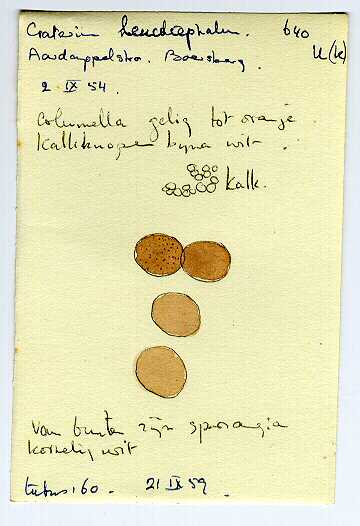 Craterium leucocephalum. 640
Aardappelstro. Boersberg. U(k)
2 IX 54.
Columella gelig tot oranje.
Kalkknopen byna wit.
kalk.
Van buiten zijn sporangia
korrelig wit
tubus 160. 21 IX 59.